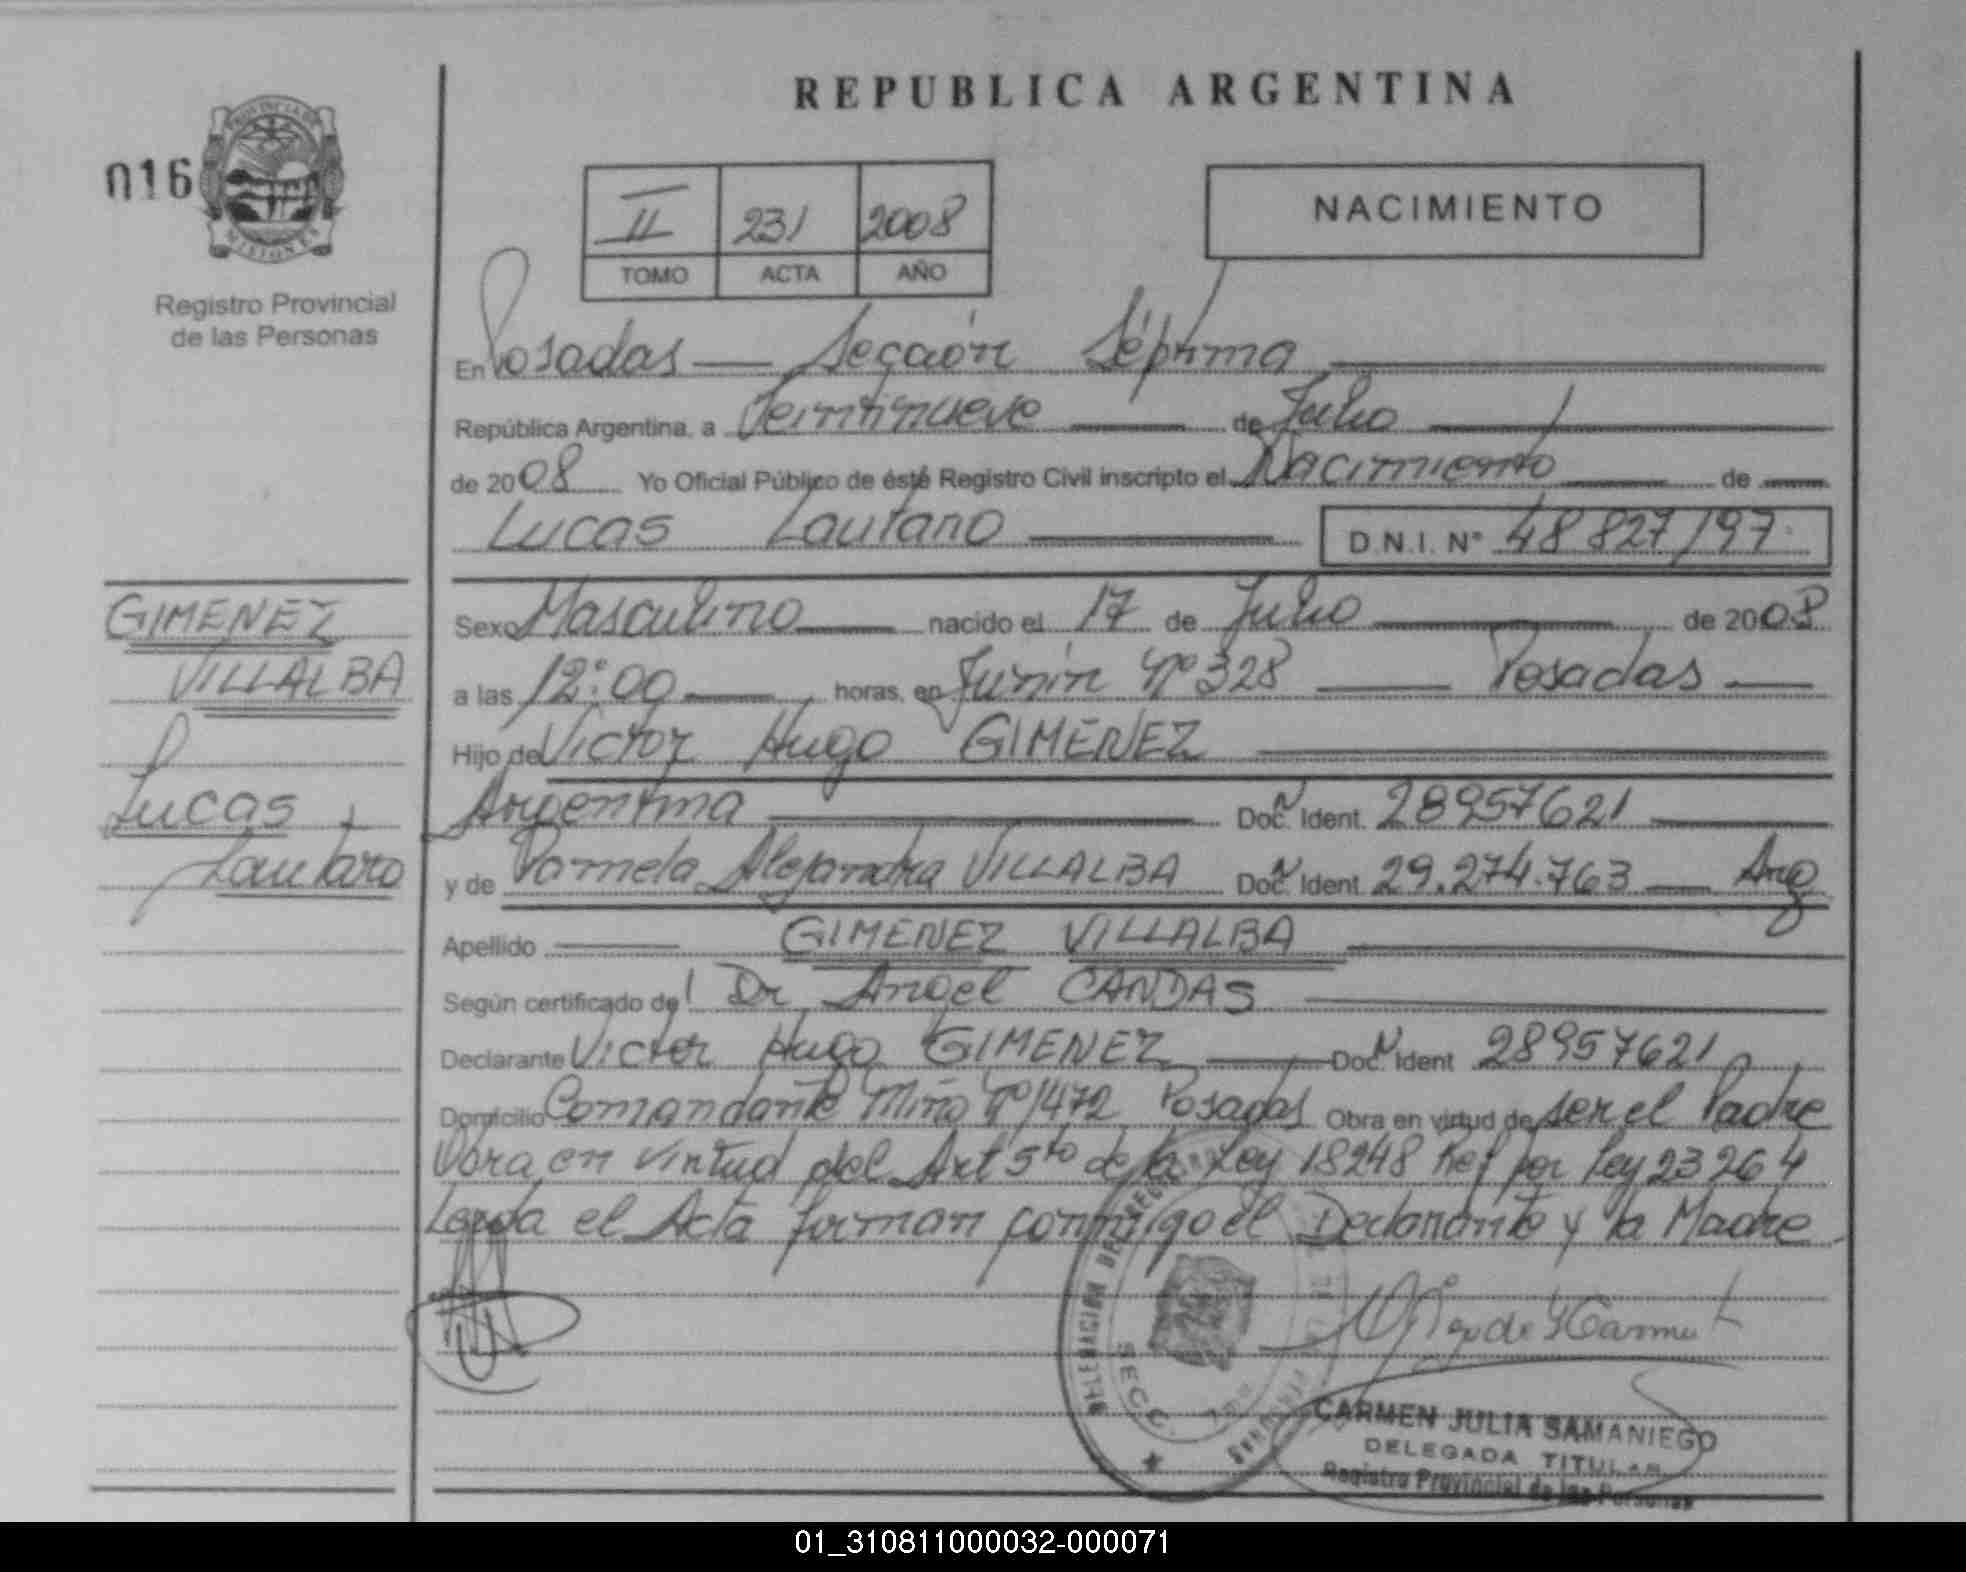 REPUBLICA ARGENTINA
016
PROVINCIA DE
MISIONES
Registro Provincial
de las Personas
II 231 2008
TOMO ACTA AÑO
NACIMIENTO
En Posadas — Sección Séptima
República Argentina, a Veintinueve de Julio
de 2008 Yo Oficial Público de éste Registro Civil inscripto el Nacimiento de
Lucas Lautaro D.N.I. N° 48 827 197
GIMENEZ
VILLALBA
Lucas
Lautaro
Sexo Masculino nacido el 17 de Julio de 2008
a las 12:00 horas, en Junín Nº 328 — Posadas —
Hijo de Victor Hugo GIMENEZ
Argentina Doc. Ident. 28957621
y de Pamela Alejandra VILLALBA Doc. Ident. 29.274.763 — Arg
Apellido GIMENEZ VILLALBA
Según certificado de Dr Angel CANDAS
Declarante Victor Hugo GIMENEZ Doc. Ident 28957621
Domicilio Comandante Miño Nº 1472 Posadas Obra en virtud de ser el Padre
Obra en virtud del Art 5to de la Ley 18248 Ref por Ley 23264
Leída el Acta firman conmigo el Declarante y la Madre
DELEGACION DEL REGISTRO
SECC.
CARMEN JULIA SAMANIEGO
DELEGADA TITULAR
Registro Provincial de las Personas
01_310811000032-000071